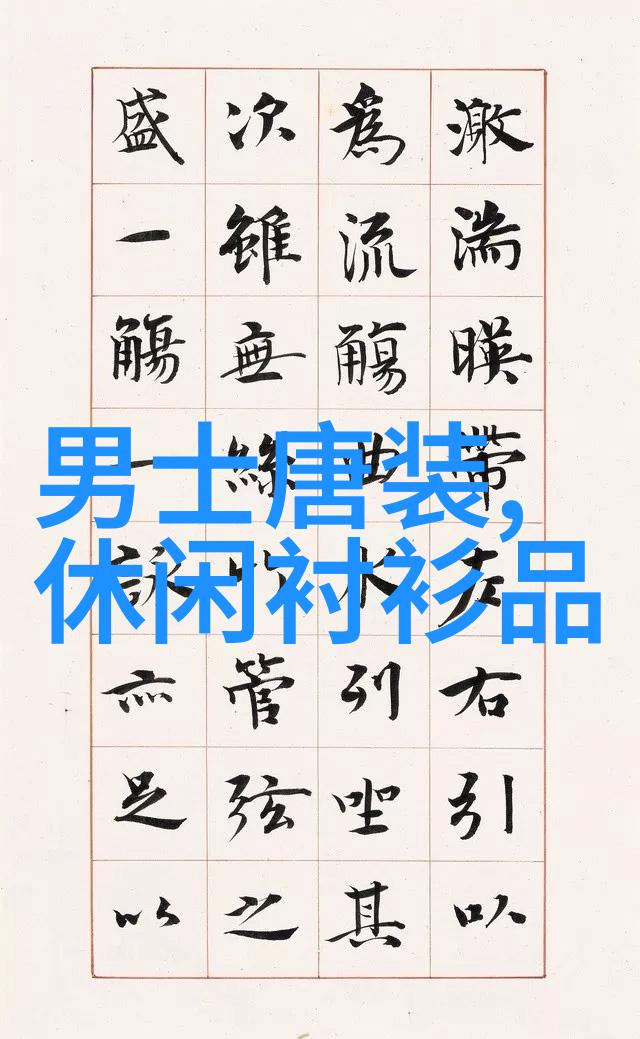 男士唐装,
休闲衬衫品
激湍暎帶左右引以
為流觴曲水列坐其
次雖無絲竹管弦之
盛一觴一詠亦足以